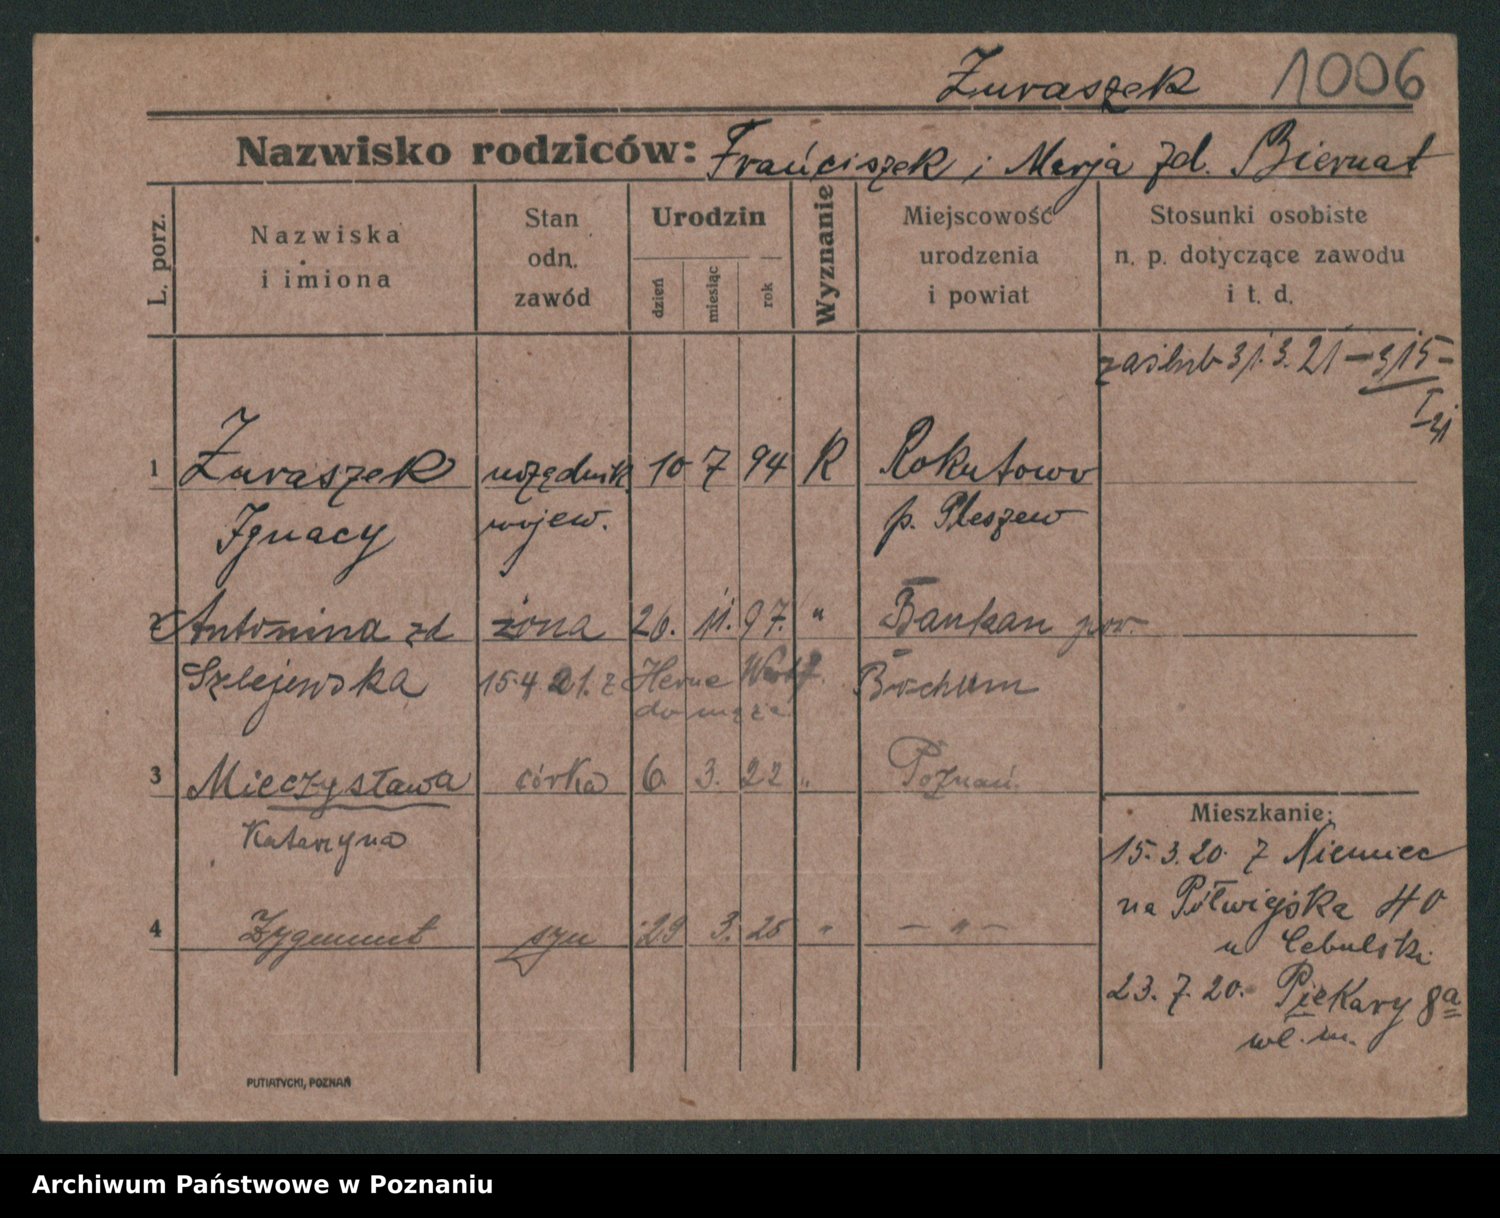 Żuraszek 1006
Nazwisko rodziców: Franciszek i Marja zd. Biernat
L. porz.
Nazwiska i imiona
Stan odn. zawód
Urodzin
dzień
miesiąc
rok
Wyznanie
Miejscowość urodzenia i powiat
Stosunki osobiste n. p. dotyczące zawodu i t. d.
zaślub 31.3.21 – 315 –
I 21
1 Żuraszek urzędnik 10 7 94 R Rokutowo
Ignacy wojew. p. Pleszew
2 Antonina zd żona 26. 11. 97. " Baukau pow.
Szlejewska 15.4 21. z Herne Westf. Bochum
do męża
3 Mieczysława córka 6. 3. 22 " Poznań
Katarzyna
4 Zygmunt syn 29 3. 25 " – " –
Mieszkanie:
15.3.20. z Niemiec
na Półwiejska 40
u Cebulski
23.7.20. Piekary 8a
wł. m.
PUTIATYCKI, POZNAŃ
Archiwum Państwowe w Poznaniu